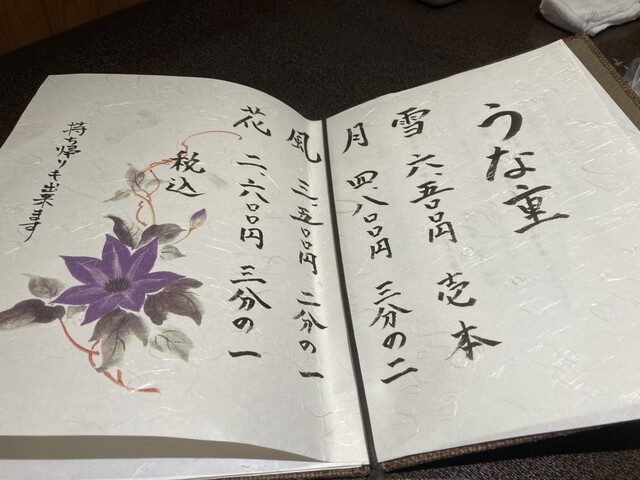 うな重
雪 六、五〇〇円 壱本
月 四、八〇〇円 三分の二
風 三、五〇〇円 二分の一
花 二、六八〇円 三分の一
税込
持ち帰りも出来ます